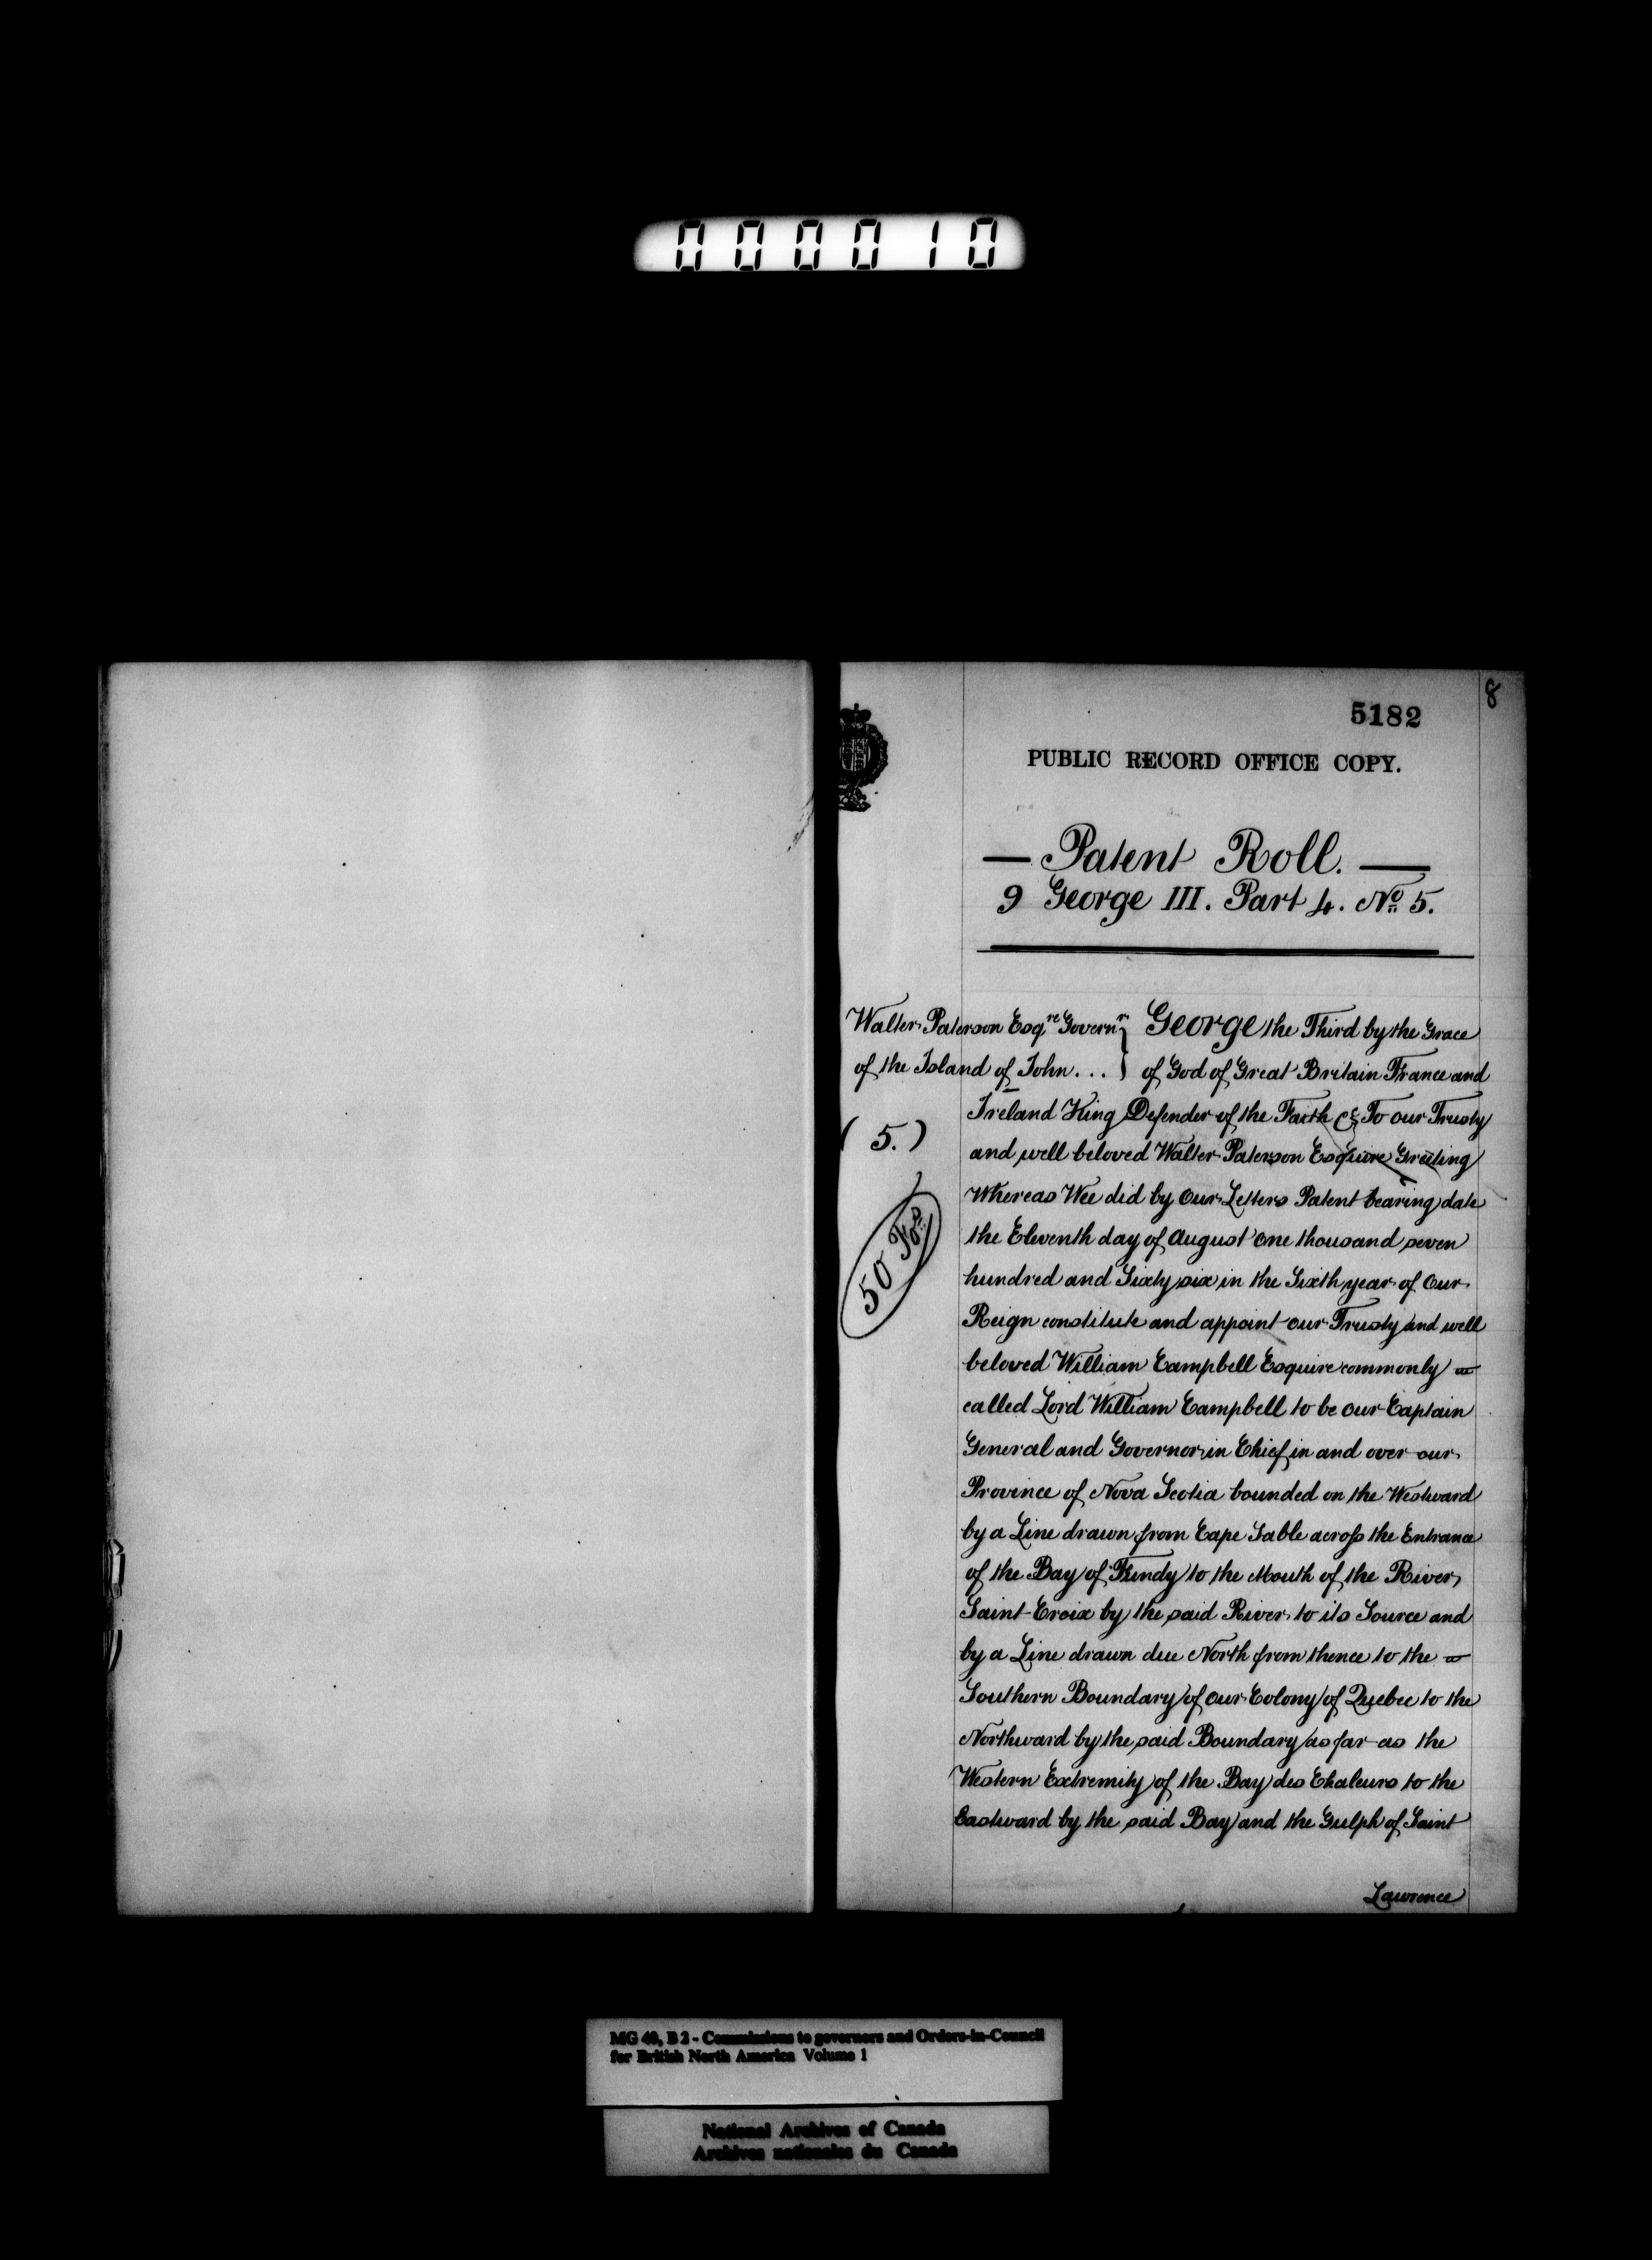 000010
8
5182
PUBLIC RECORD OFFICE COPY.
— Patent Roll. —
9 George III. Part 4. No. 5.
Walter Paterson Esqre Governr } George the Third by the Grace
of the Island of John . . . } of God of Great Britain France and
Ireland King Defender of the Faith &c To our Trusty
(5.)
and well beloved Walter Paterson Esquire Greeting
Whereas Wee did by Our Letters Patent bearing date
the Eleventh day of August One thousand seven
50 Fos
hundred and Sixty six in the Sixth year of Our
Reign constitute and appoint our Trusty and well
beloved William Campbell Esquire commonly
called Lord William Campbell to be our Captain
General and Governor in Chief in and over our
Province of Nova Scotia bounded on the Westward
by a Line drawn from Cape Sable across the Entrance
of the Bay of Fundy to the Mouth of the River
Saint Croix by the said River to its Source and
by a Line drawn due North from thence to the
Southern Boundary of our Colony of Quebec to the
Northward by the said Boundary as far as the
Western Extremity of the Bay des Chaleurs to the
Eastward by the said Bay and the Gulph of Saint
Lawrence
MG 40, B 2 - Commissions to governors and Orders-in-Council
for British North America Volume 1
National Archives of Canada
Archives nationales du Canada